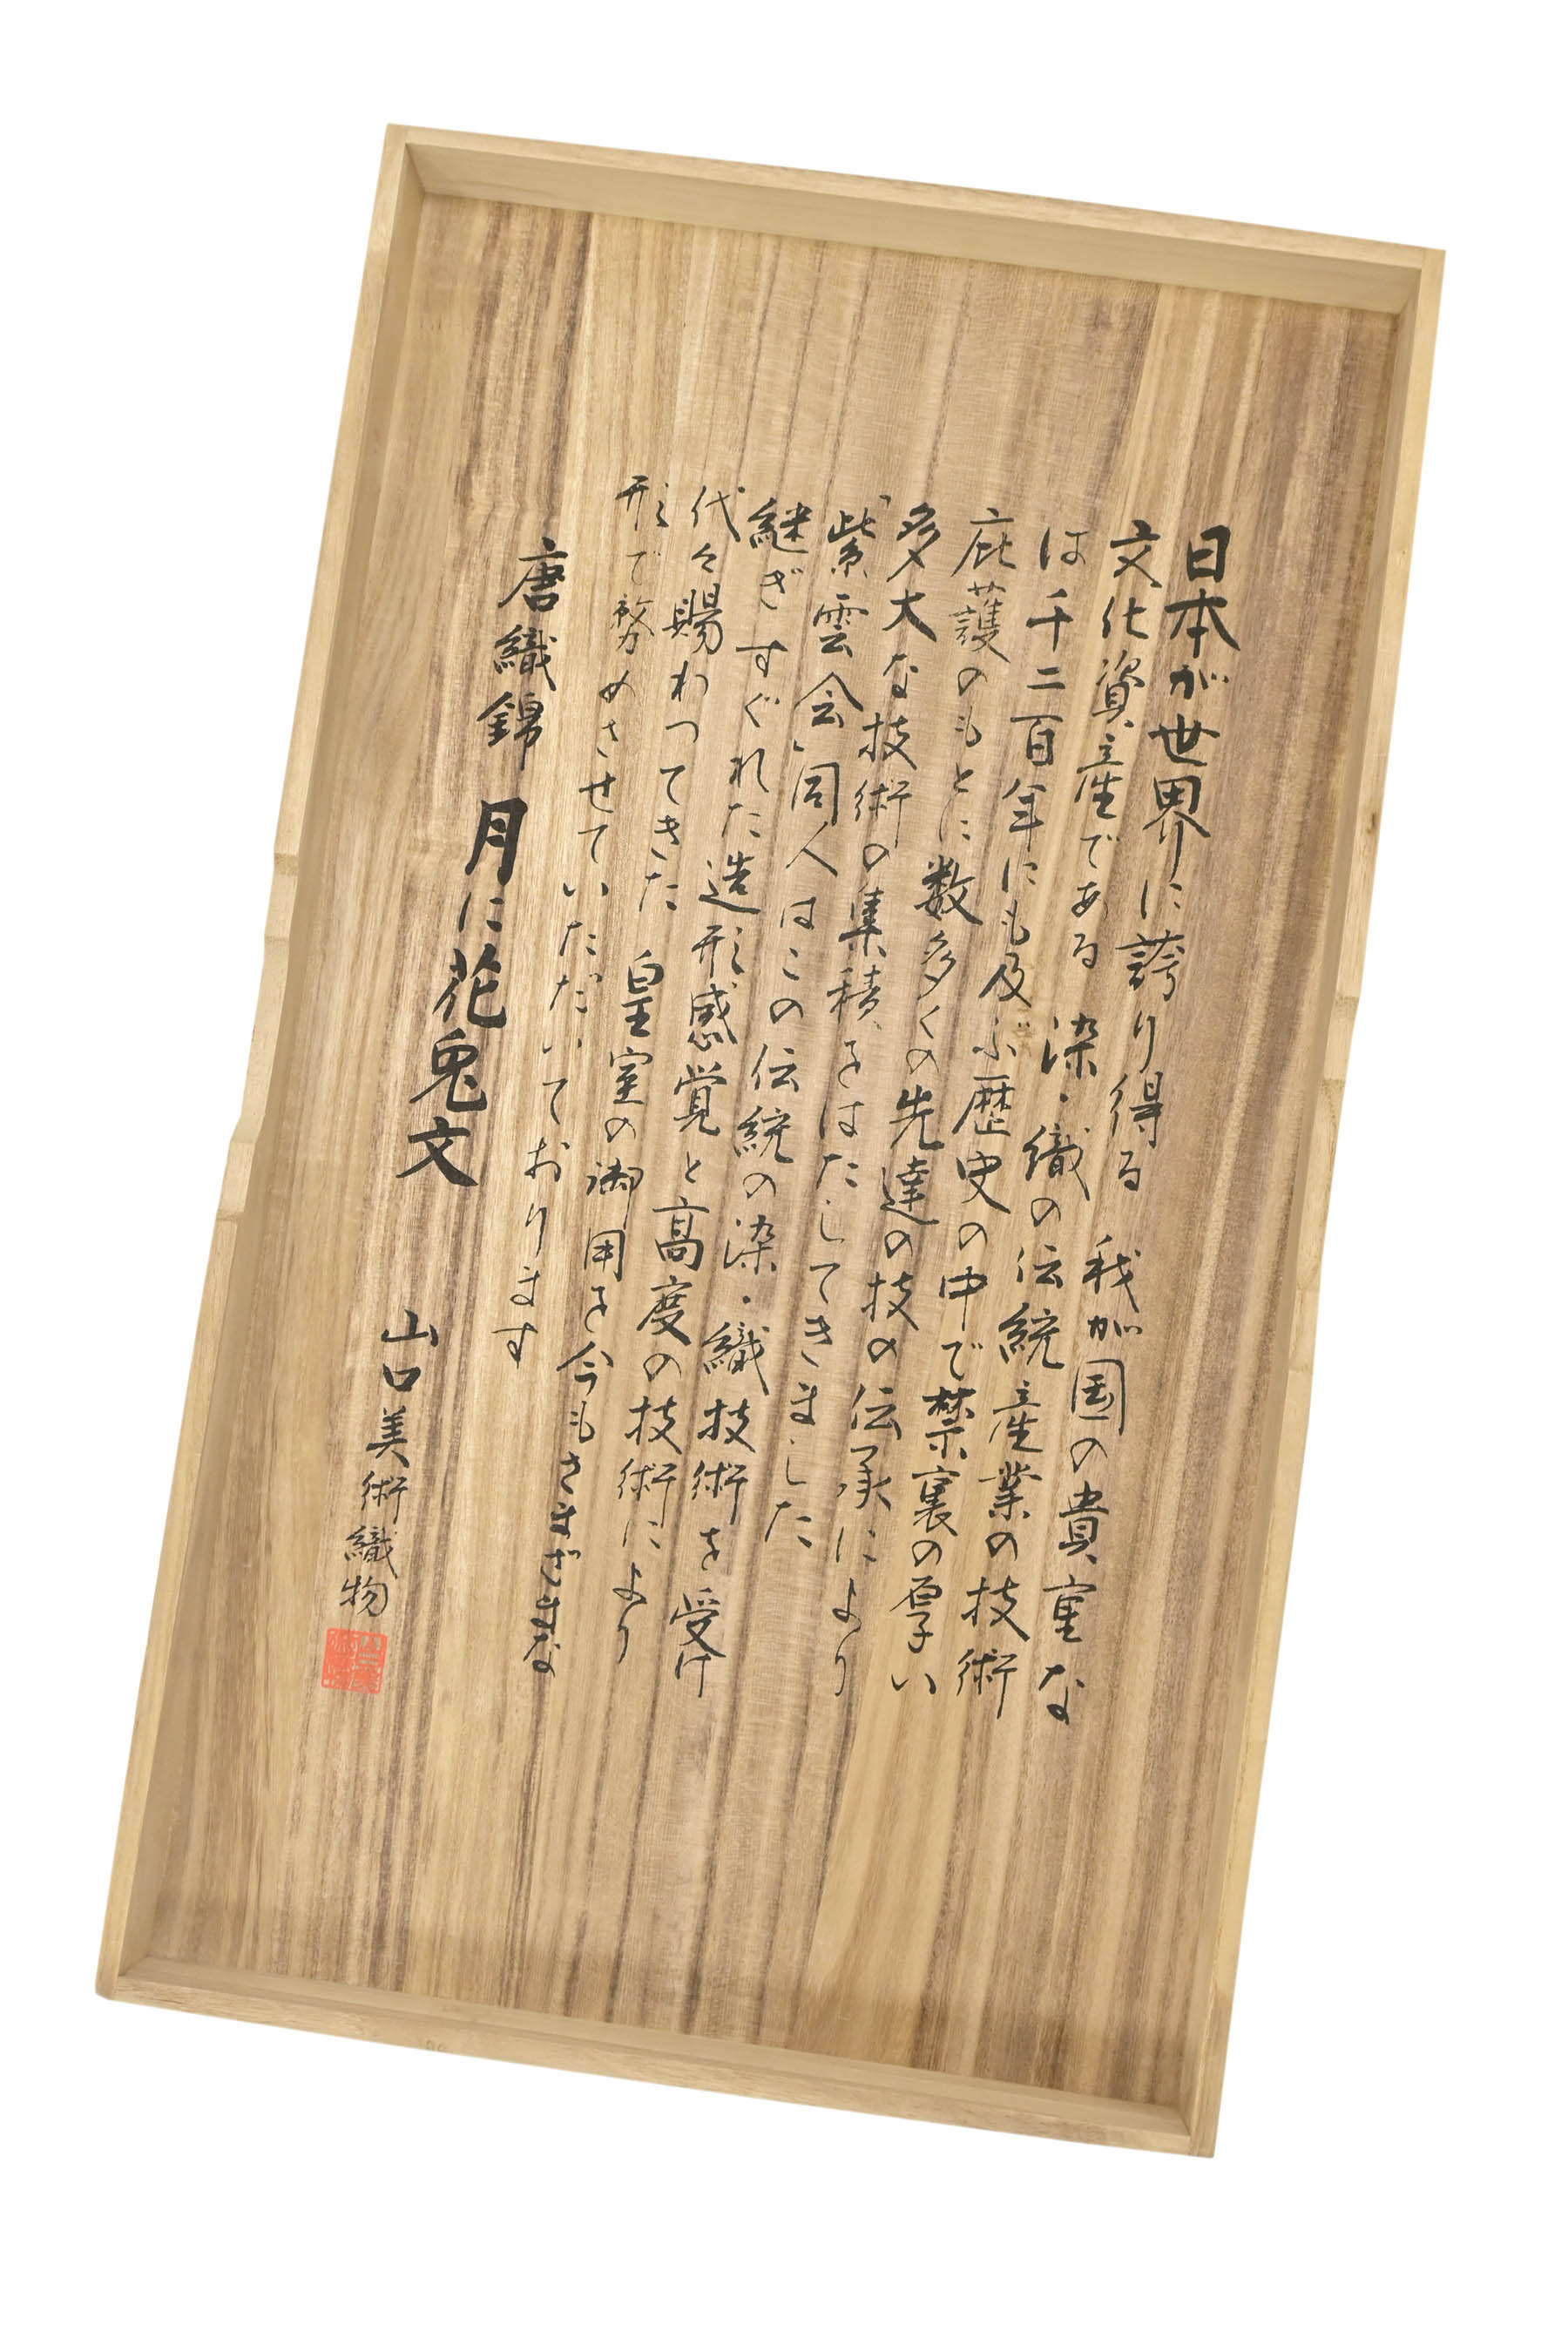 日本が世界に誇り得る 我が国の貴重な
文化資産である 染・織の伝統産業の技術
は千二百年にも及ぶ歴史の中で禁裏の厚い
庇護のもとに数多くの先達の技の伝承により
多大な技術の集積をはたしてきました
「紫雲会」同人はこの伝統の染・織技術を受け
継ぎすぐれた造形感覚と高度の技術により
代々賜わってきた 皇室の御用を今もさまざまな
形で努めさせていただいております
唐織錦 月に花兎文
山口美術織物